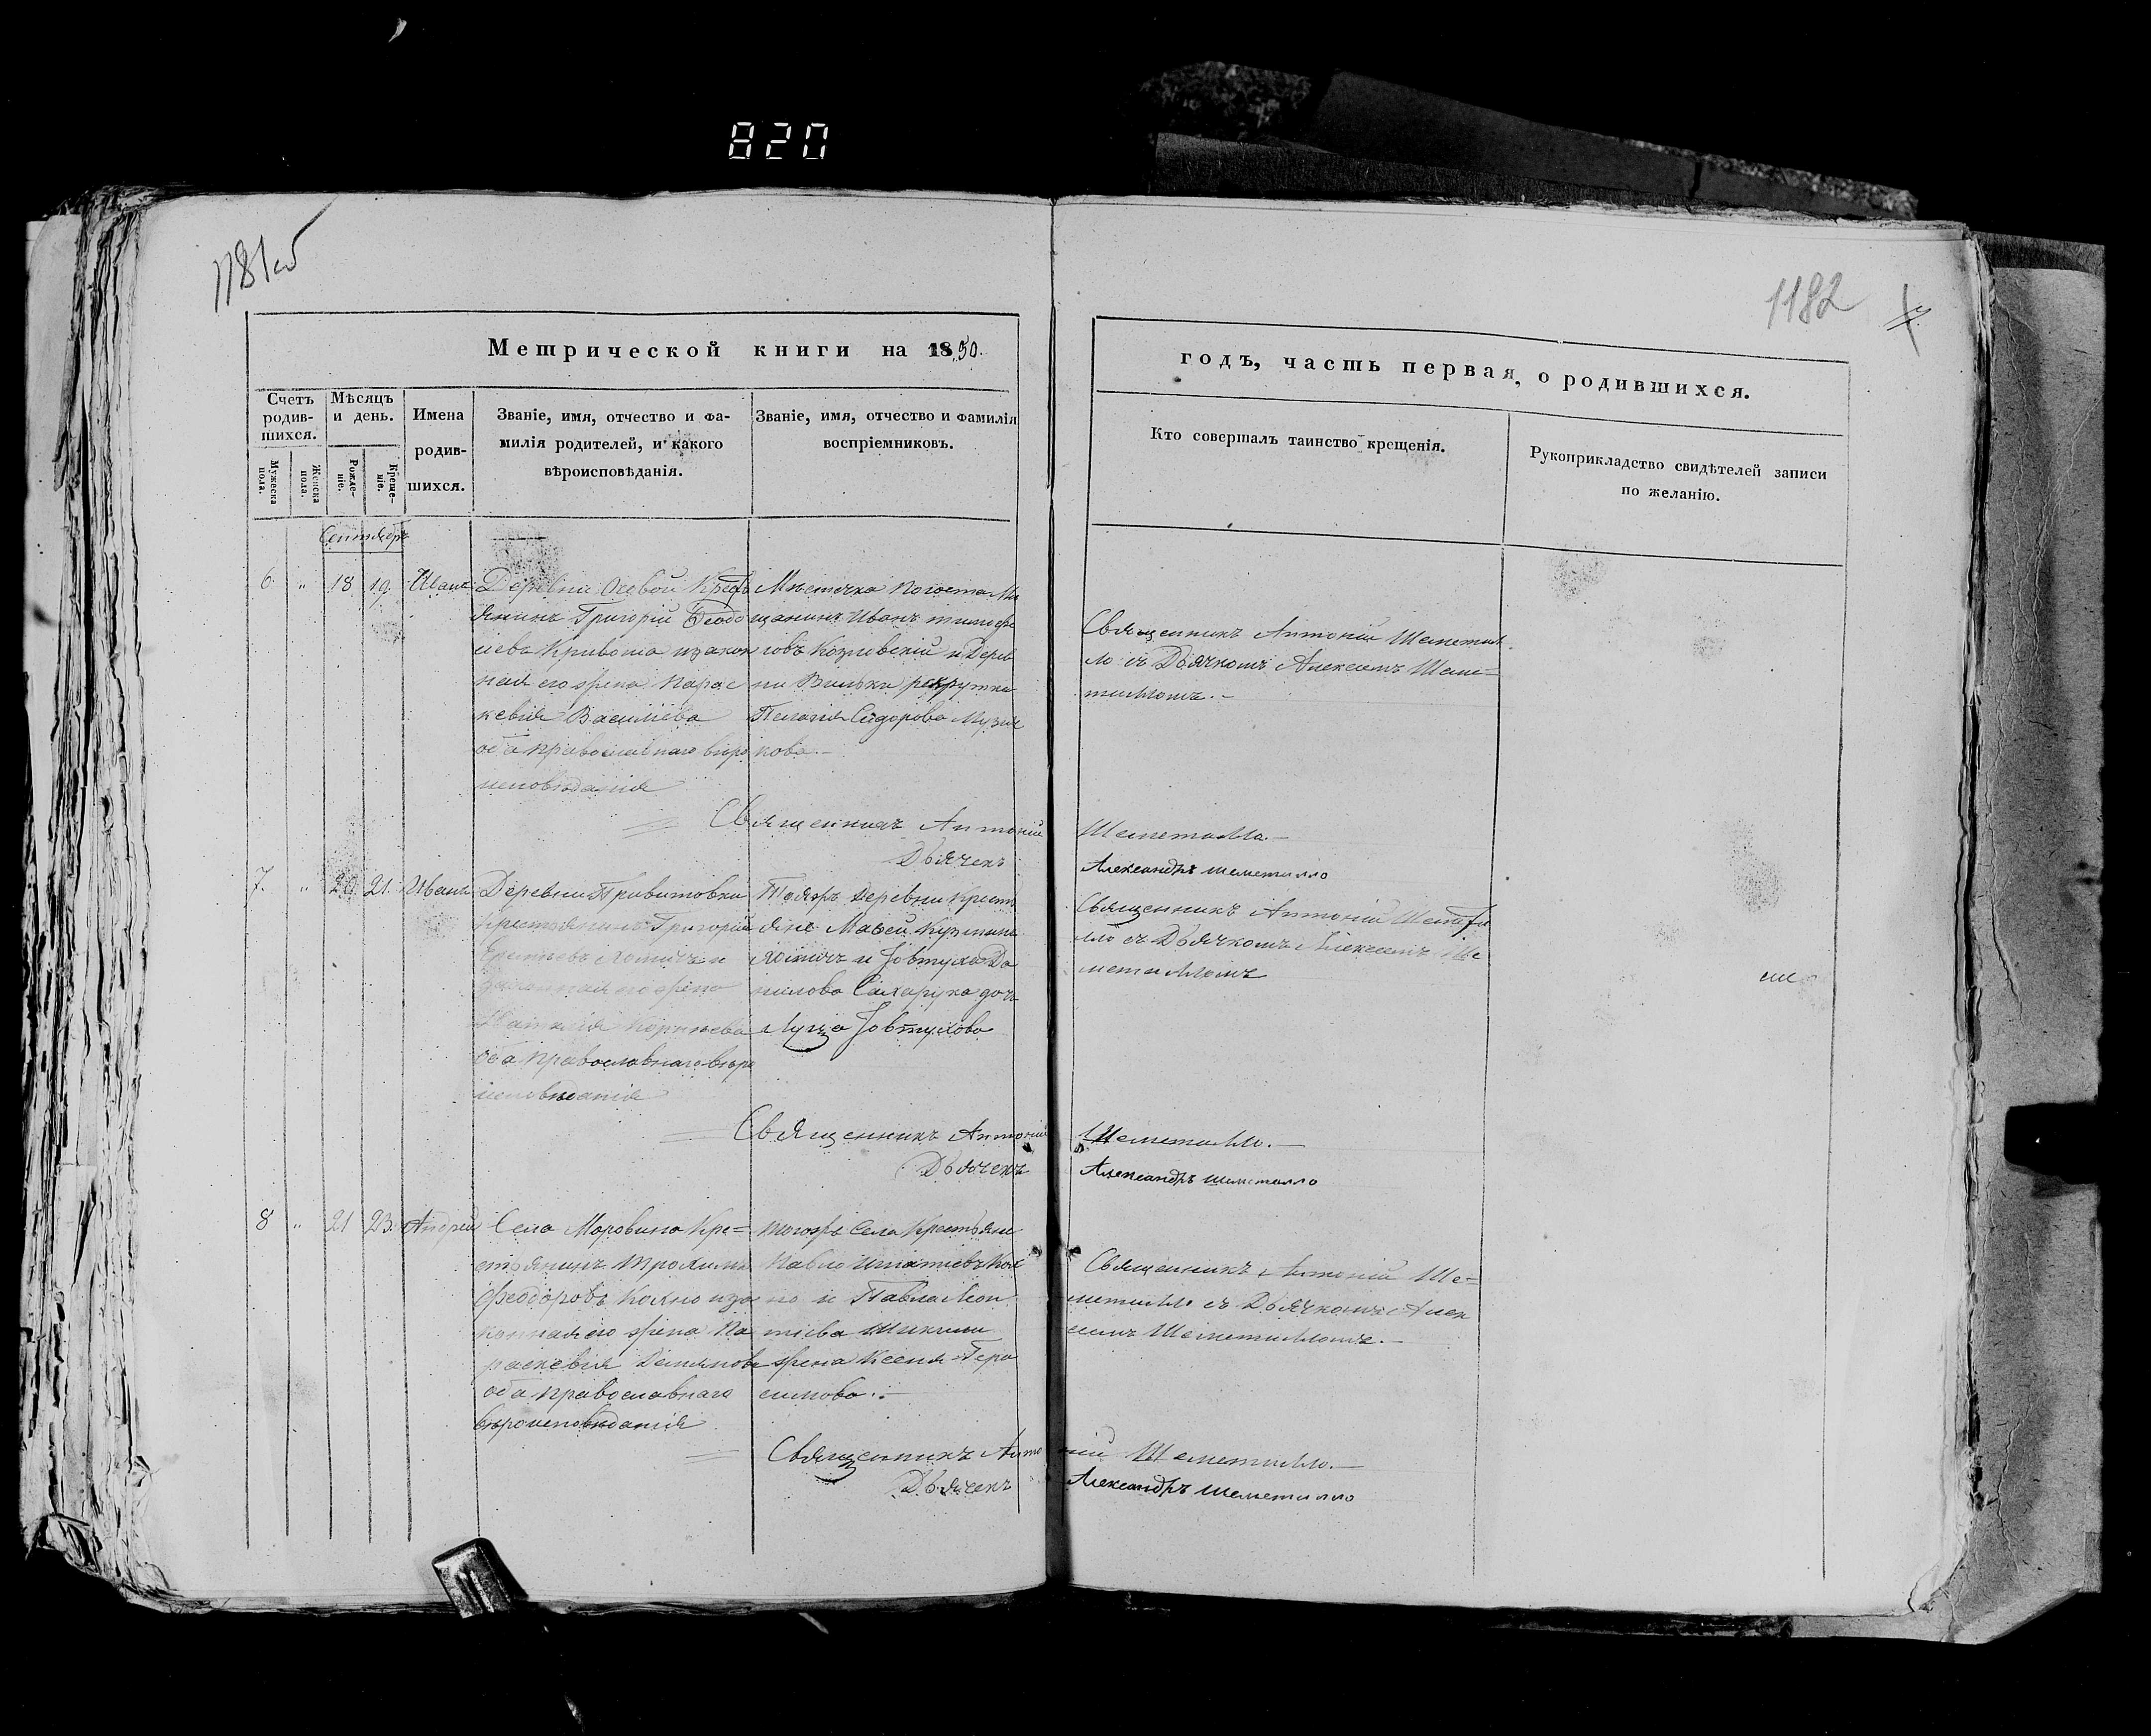 820
1181 об
1182
Метрической книги на 1850.
годъ, часть первая, о родившихся.
Счетъ родив-
шихся.
Мужеска пола.
Женска пола.
Мѣсяцъ и день.
Рожде-
ніе.
Креще-
ніе.
Имена
родив-
шихся.
Званіе, имя, отчество и фа-
милія родителей, и какого
вѣроисповѣданія.
Званіе, имя, отчество и фамилія
воспріемниковъ.
Кто совершалъ таинство крещенія.
Рукоприкладство свидѣтелей записи
по желанію.
Сентябрь
6. " 18 19. Иванъ
Деревни Осовой Крест
янинъ Григорій Ѳеодо
ѣевъ и закон
ная его жена Парас
кевія Василіева
оба православнаго вѣро
исповѣданія
Мѣстечка Погоста Мѣ
щанинъ Иванъ тимофе
іовъ Козловскій и Дерев
ни Вильки рекрутка
Пелагія Сидорова
кова.-
Священникъ Антоній Шеметил
ло съ Дьячкомъ Алексеемъ Шеме=
тилломъ.-
Священникъ Антоній Шеметилло.-
Дьячекъ Александръ шеметилло
7. " 20 21. Иванъ
Деревни
Крестьянинъ Григорій
и
законная его жена
оба православнаго вѣро
исповѣданія
Тояжъ Деревни Крест
яне Матѳей Кузминъ
и Іовтуха Да
нилова Сахарука дочь
Луца Іовтухова
Священникъ Антоній Шемети
лло съ Дьячкомъ Алексеемъ Ше
метилломъ
Священникъ Антоній Шеметилло.-
Дьячекъ Александръ шеметилло
8 " 21 23. Андрей
Села Моровина Кре=
стьянинъ Трохимъ
Феодоровъ Кохно и за
конная его жена Па
раскевія Демянова
оба православнаго
вѣроисповѣданія
тогожъ Села Крестьяне
Павло Игнатіевъ Кох
но и Павла Леон
тіева
жена Ксенія Гера
симова.-
Священникъ Антоній Ше=
метилло съ Дьячкомъ Алек
сеемъ Шеметилломъ.-
Священникъ Антоній Шеметилло.-
Дьячекъ Александръ шеметилло